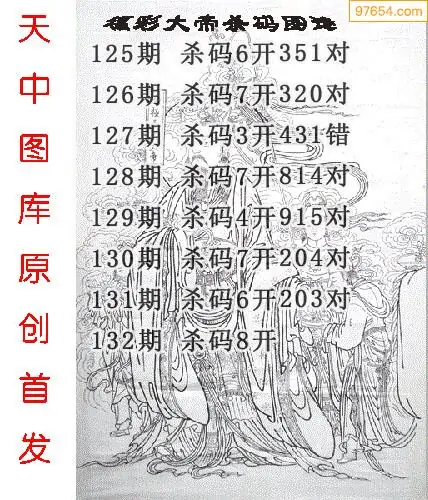 97654.com
福彩大帝杀码图谜
125期 杀码6开351对
126期 杀码7开320对
127期 杀码3开431错
128期 杀码7开814对
129期 杀码4开915对
130期 杀码7开204对
131期 杀码6开203对
132期 杀码8开
天中图库原创首发